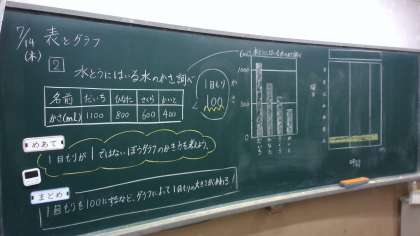 7/14
(木)
表とグラフ
2
水とうにはいる水のかさ調べ
名前 だいち ひなた さくら かいと
かさ(mL) 1100 800 600 400
1目もり
100
めあて
1目もりが1ではないぼうグラフのかき方を考えよう。
まとめ
1目もりを100にするなど、グラフによって1目もりの大きさがかわる!
(mL)
水とうにはいる水のかさ調べ
1000
500
0